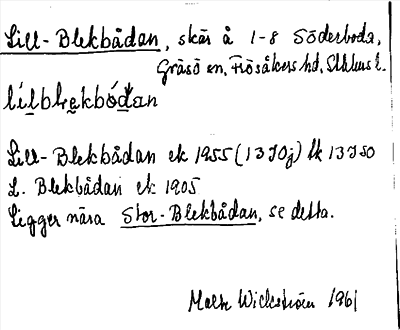 Lill-Blekbådan, skär å 1-8 Söderboda,
Gräsö sn, Frösåkers hd, Sthlms l.
Lill-Blekbådan ek 1955 (13 I 0j) lk 13 I S0
L. Blekbådan ek 1905
Ligger nära Stor-Blekbådan, se detta.
Malte Wickström 1961